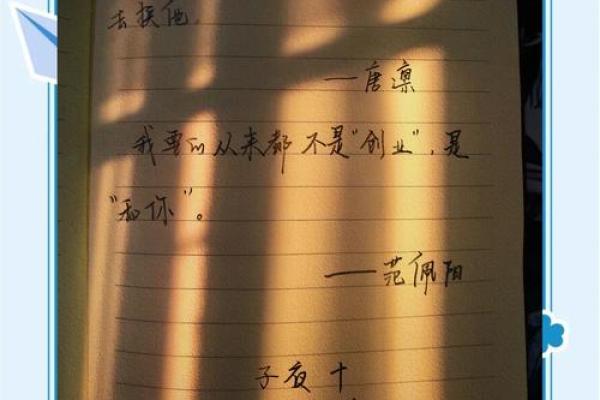 去换他。
——唐凛
我要的从来都不是“创业”，是
“和你”。
——范佩阳
子夜十